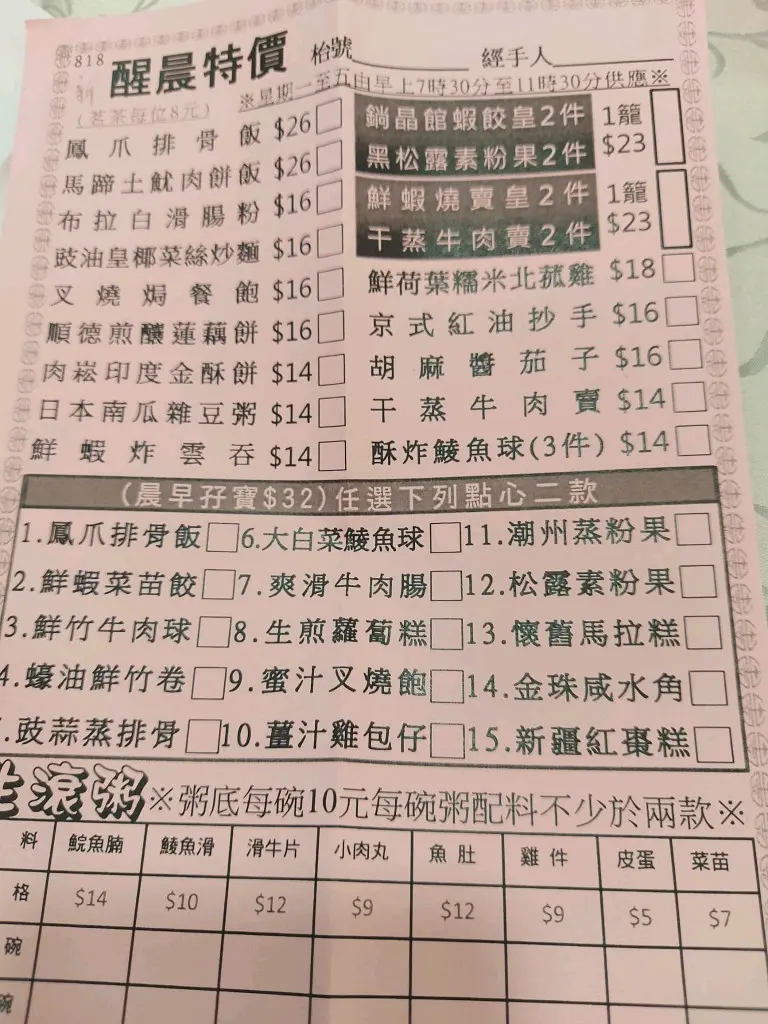 818 醒晨特價 枱號 經手人
(茗茶每位8元) ※星期一至五由早上7時30分至11時30分供應※
鳳爪排骨飯 $26
馬蹄土魷肉餅飯 $26
布拉白滑腸粉 $16
豉油皇椰菜絲炒麵 $16
叉燒焗餐飽 $16
順德煎釀蓮藕餅 $16
肉崧印度金酥餅 $14
日本南瓜雜豆粥 $14
鮮蝦炸雲吞 $14
鍋晶館蝦餃皇2件
黑松露素粉果2件
1籠
$23
鮮蝦燒賣皇2件
干蒸牛肉賣2件
1籠
$23
鮮荷葉糯米北菰雞 $18
京式紅油抄手 $16
胡麻醬茄子 $16
干蒸牛肉賣 $14
酥炸鯪魚球(3件) $14
(晨早孖寶$32)任選下列點心二款
1.鳳爪排骨飯 6.大白菜鯪魚球 11.潮州蒸粉果
2.鮮蝦菜苗餃 7.爽滑牛肉腸 12.松露素粉果
3.鮮竹牛肉球 8.生煎蘿蔔糕 13.懷舊馬拉糕
4.蠔油鮮竹卷 9.蜜汁叉燒飽 14.金珠咸水角
.豉蒜蒸排骨 10.薑汁雞包仔 15.新疆紅棗糕
生滾粥 ※粥底每碗10元每碗粥配料不少於兩款※
料 鯇魚腩 鯪魚滑 滑牛片 小肉丸 魚肚 雞件 皮蛋 菜苗
格 $14 $10 $12 $9 $12 $9 $5 $7
碗
碗